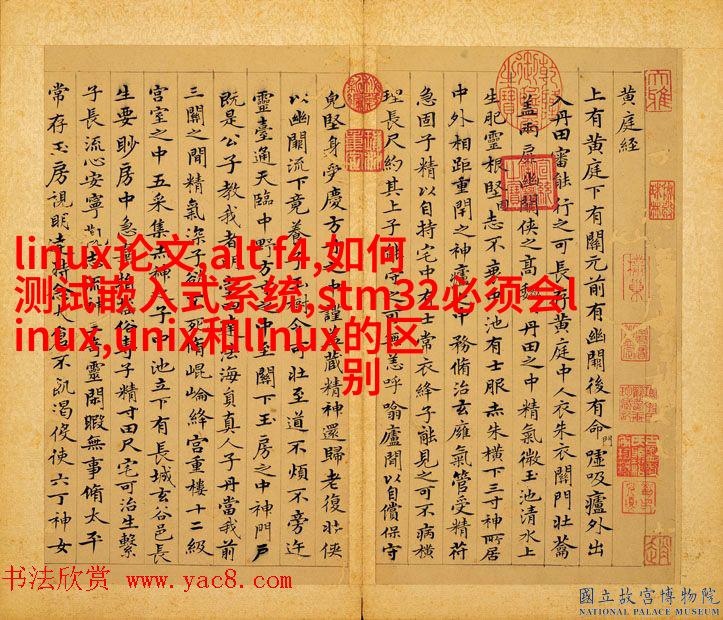 黄庭経
上有黄庭下有關元前有幽闕後有命門嘘吸廬外出
入丹田審能行之可長存黄庭中人衣朱衣關門壯蘥
盖兩扉幽闕俠之高巍丹田之中精氣微玉池清水上
生肥靈根堅志不衰中池有士服赤朱横下三寸神所居
中外相距重閇之神廬之中務脩治玄廱氣管受精符
急固子精以自持宅中有士常衣絳子能見之可不病横
理長尺約其上子能守之可無恙呼噏廬閒以自償保守
皃堅身受慶方寸之中謹盖藏精神還歸老復壯俠
以幽闕流下竟養子玉樹令可壯至道不煩不旁迕
靈臺通天臨中野方寸之中至關下玉房之中神門戶
既是公子教我者明堂四達法海負真人子丹當我前
三關之閒精氣深子欲不死脩崐崘絳宮重樓十二級
宮室之中五采集赤神之子中池立下有長城玄谷邑長
生要眇房中急棄捐俗専子精寸田尺宅可治生繫
子長流心安寧觀志三奇靈閒暇無事脩太平
常存玉房視明達時念大倉不飢渴役使六丁神女
linux论文,alt f4,如何
测试嵌入式系统,stm32必须会l
inux,unix和linux的区
别
书法欣赏 www.yac8.com
國立故宮博物院
NATIONAL PALACE MUSEUM